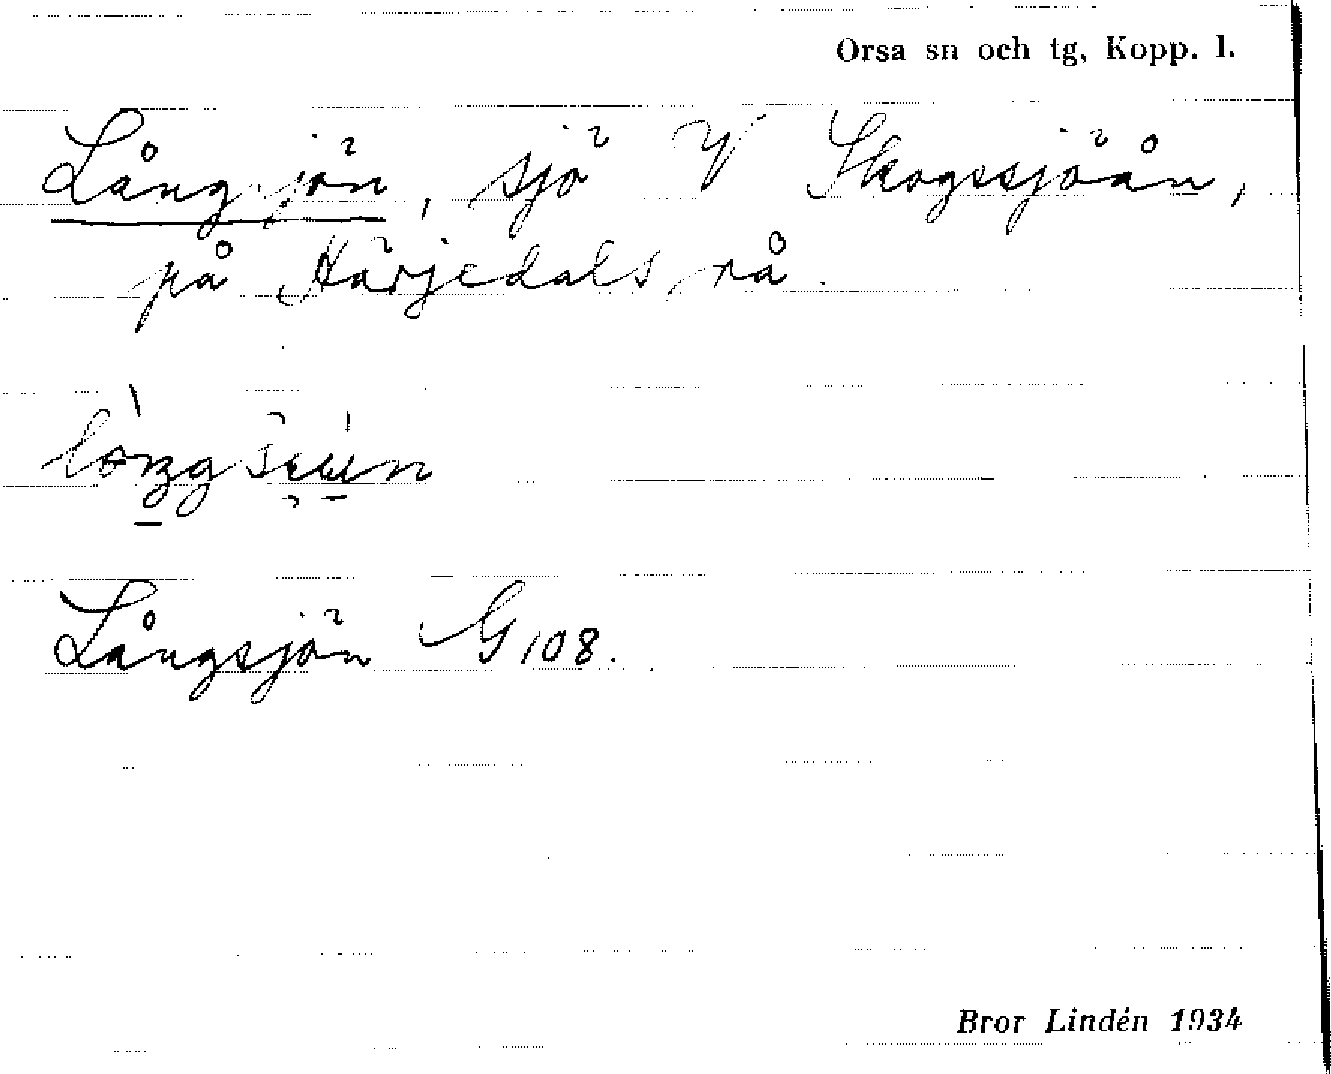 Orsa sn och tg, Kopp. l.
Långsjön, sjö V Skogssjöån,
på Härjedals rå.
Långsjön G 108.
Bror Lindén 1934